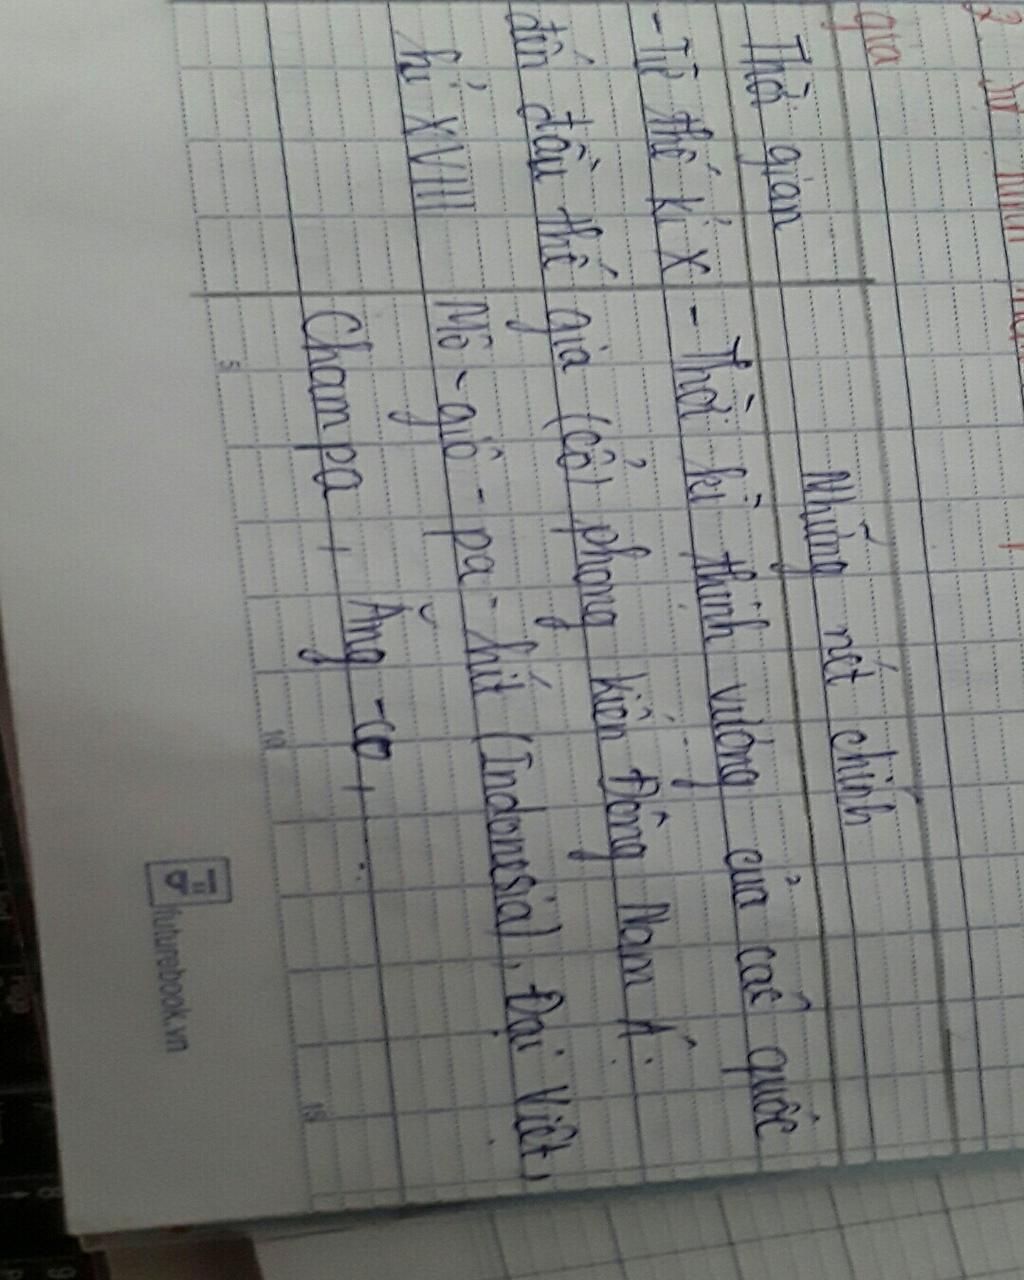 gia
Thời gian
Những nét chính
- Từ thế kỉ X
đến đầu thế
kỉ XVIII
- Thời kì thịnh vượng của các quốc
gia (cổ) phong kiến Đông Nam Á:
Mô-giô-pa-hít (Indonesia), Đại Việt,
Champa, Ăng-co, ...
5
10
15
futurebook.vn